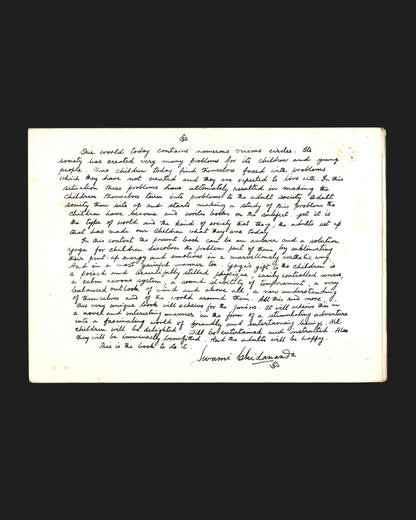 ॐ
Our world today contains numerous vicious circles. Its
society has created very many problems for its children and young
people. Thus children today find themselves faced with problems
which they have not created and they are expected to live with. In this
situation these problems have ultimately resulted in making the
children themselves turn into problems to the adult society. Adult
society then sits up and starts making a study of this problem the
children have become and writes books on the subject yet it is
the type of world and the kind of society that they, the adults set up
that has made our children what they are today.
In this context the present book can be an answer and a solution.
Yoga for children dissolves the problem part of them by sublimating
their pent-up energy and emotions in a marvellously aesthetic way,
And in a most gainful manner too. Yoga's gift to the children is
a poised and beautifully stilled physique, easily controlled nerves,
a calm nervous system, a sound stability of temperament, a very
balanced outlook of mind and above all, a new understanding
of themselves and of the world around them. All this and more,
this very unique book will achieve for the juniors. It will achieve this in
a novel and interesting manner, in the form of a stimulating adventure
into a fascinating world of friendly and entertaining beings. All
children will be delighted. Will be entertained and instructed. Also
they will be immensely benefitted. And the adults will be happy.
This is the book to do it.
Swami Chidananda
ॐ